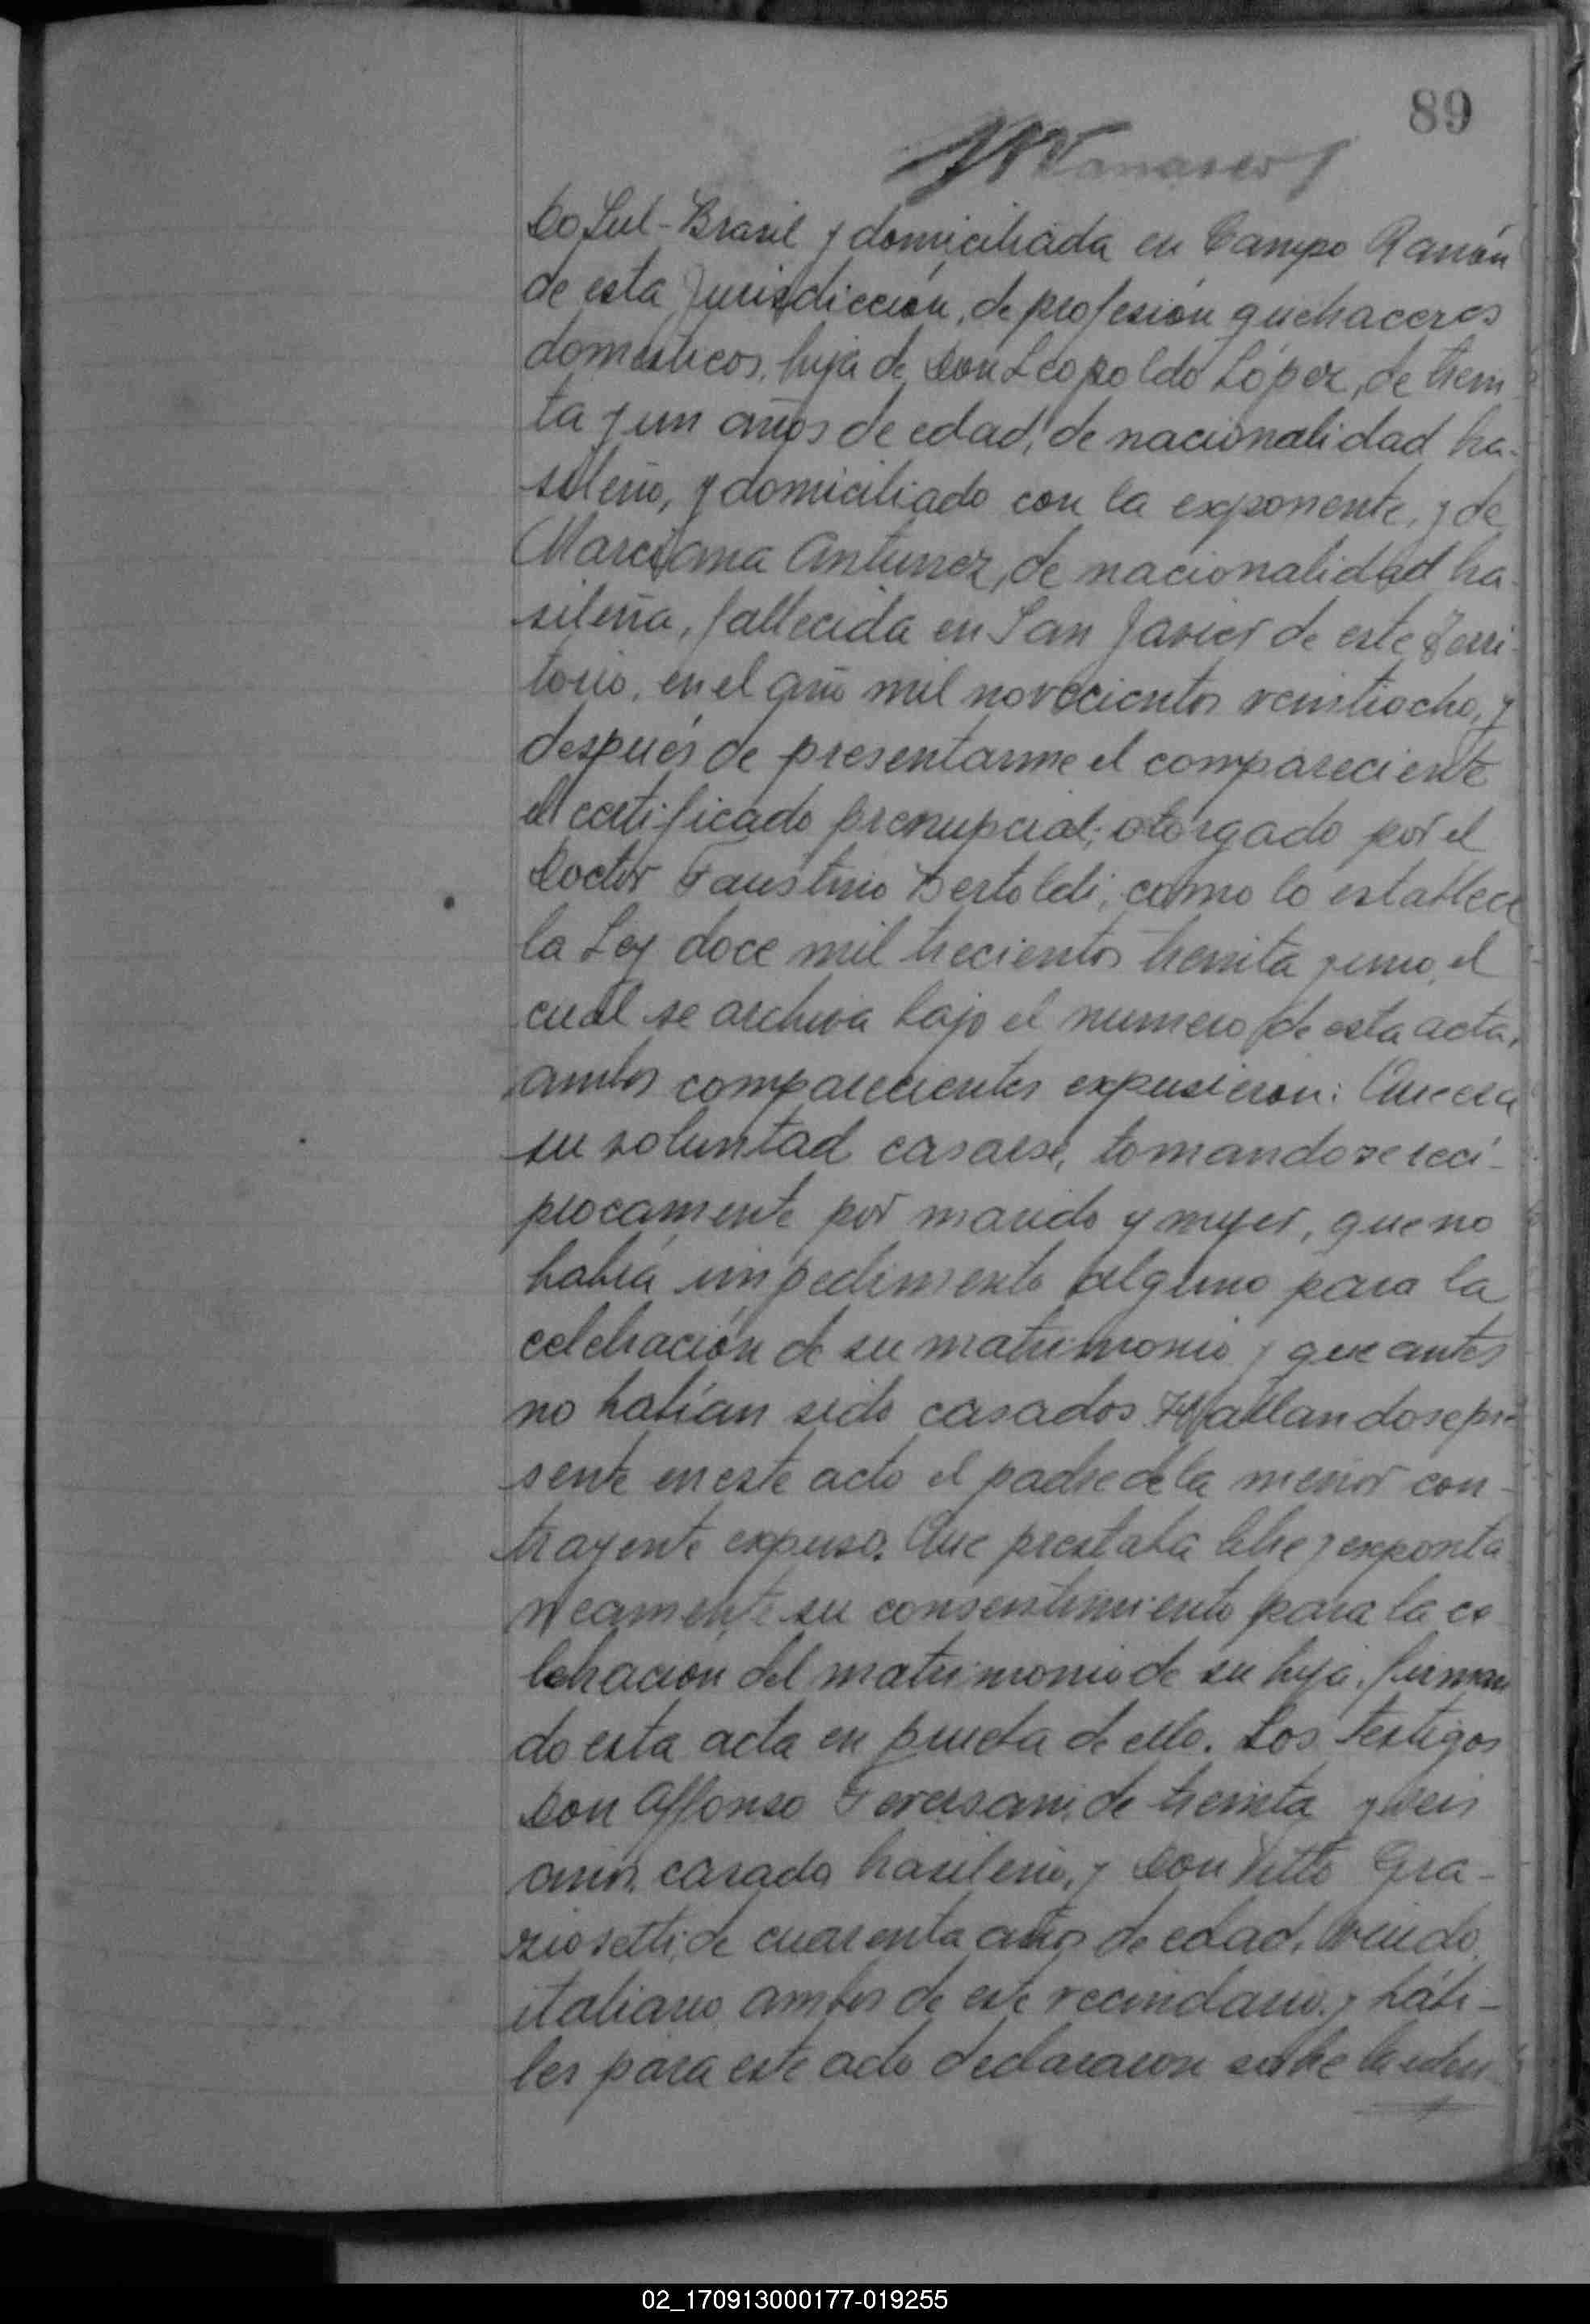 89
Do Sul-Brasil y domiciliada en Campo Ramón
de esta Jurisdicción, de profesión quehaceres
domésticos, hija de Don Leopoldo López, de trein
ta y un años de edad, de nacionalidad bra-
sileño, y domiciliado con la exponente, y de
Marciana Antunez, de nacionalidad bra-
sileña, fallecida en San Javier de este Terri-
torio, en el año mil novecientos veintiocho, y
después de presentarme el compareciente
el certificado prenupcial, otorgado por el
Doctor Faustino Bertoldi, como lo establece
la Ley doce mil trecientos treinta y uno, el
cual se archiva bajo el numero de esta acta,
ambos comparecientes expusieron: Que era
su voluntad casarse, tomandose recí-
procamente por marido y mujer, que no
había impedimento alguno para la
celebración de su matrimonio y que antes
no habían sido casados Hallandose pre
sente en este acto el padre de la menor con-
trayente expuso. Que prestaba libre y exponta
neamente su consentimiento para la ce
lebración del matrimonio de su hija, firman
do esta acta en prueba de ello. Los testigos
Don Affonso de treinta y seis
años, casado brasileño, y Don Gra-
ziosetti, de cuarenta años de edad, viudo,
italiano, ambos de este vecindario y hábi-
les para este acto declararon sobre la iden-
02_170913000177-019255